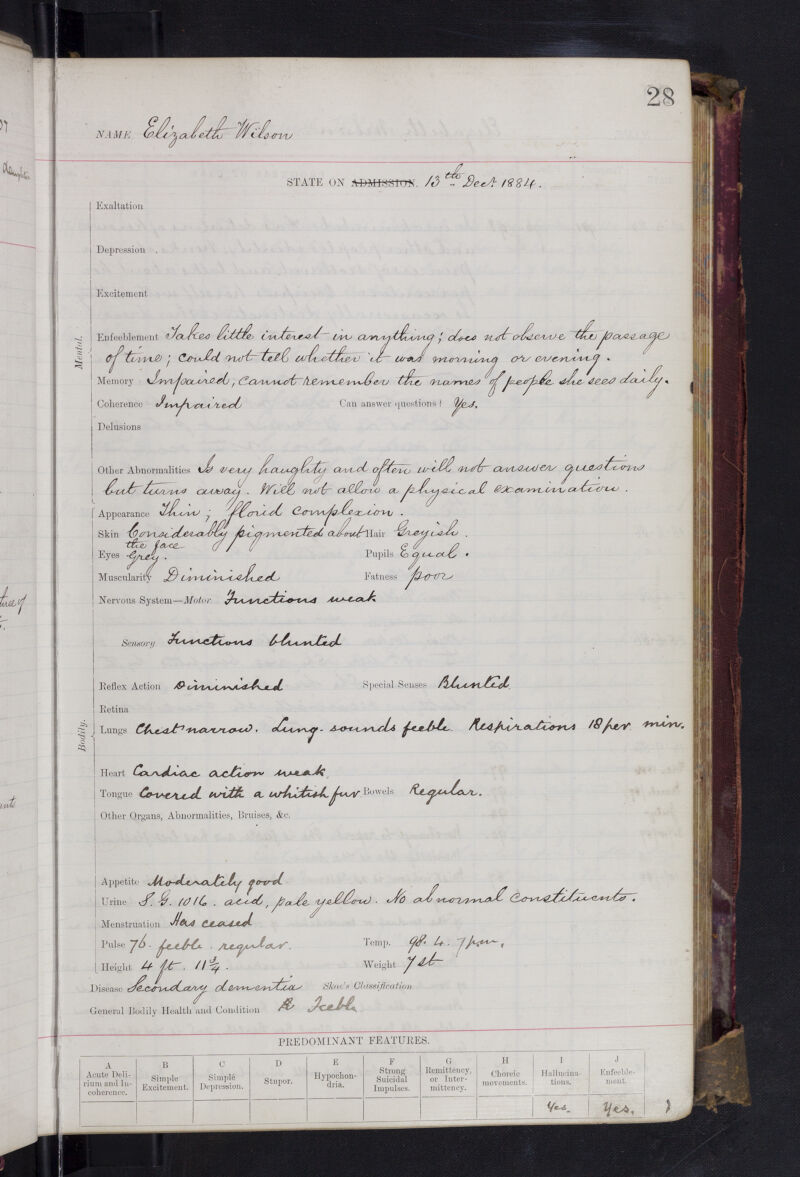 28
NAME Elizabeth Wilson
STATE ON ADMISSION. 13th Decr 1884.
Mental.
Exaltation
Depression .
Excitement
Enfeeblement Takes little interest in anything; does not observe the passage
of time; could not tell whether it was morning or evening.
Memory Impaired, cannot remember the names of people she sees daily.
Coherence Impaired Can answer questions? Yes.
Delusions
Other Abnormalities Is very haughty and often will not answer questions
but turns away. Will not allow a physical examination.
Bodily.
Appearance Thin; florid complexion.
Skin Considerably pigmented about the face Hair Greyish.
Eyes Grey. Pupils Equal.
Muscularity Diminished Fatness poor
Nervous System—Motor Functions weak
Sensory Functions blunted
Reflex Action Diminished Special Senses Blunted
Retina
Lungs Chest narrow. Lung-sounds feeble Respirations 18 per min.
Heart Cardiac action weak.
Tongue Covered with a whitish fur Bowels Regular.
Other Organs, Abnormalities, Bruises, &c.
Appetite Moderately good
Urine S.G. 1016. acid, pale yellow. No abnormal constituents.
Menstruation Has ceased
Pulse 76. feeble. regular. Temp. 98.4. 7 p.m.
Height 4 ft. 11 3/4. Weight 7 st
Disease Secondary dementia Skae's Classification
General Bodily Health and Condition Feeble
PREDOMINANT FEATURES.
A B C D E F G H I J
Acute Delirium and Incoherence. Simple Excitement. Simple Depression. Stupor. Hypochondria. Strong Suicidal Impulses. Remittency, or Intermittency. Choreic movements. Hallucinations. Enfeeblement.
Yes. Yes.